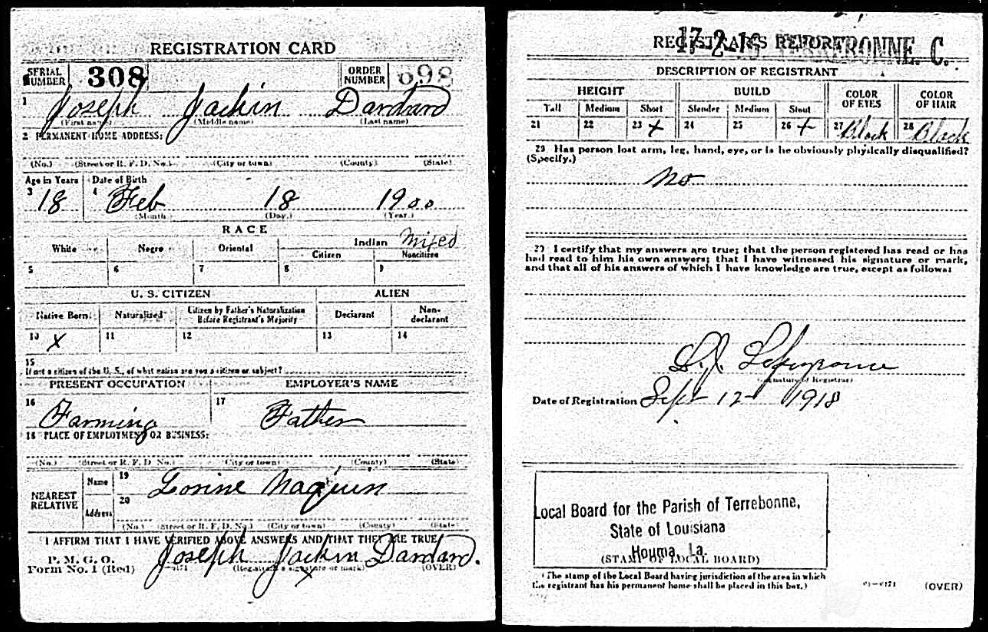 REGISTRATION CARD
SERIAL NUMBER 308 ORDER NUMBER 698
1 Joseph Jackin Dardard
(First name) (Middle name) (Last name)
2 PERMANENT HOME ADDRESS:
(No.) (Street or R. F. D. No.) (City or town) (County) (State)
Age in Years Date of Birth
3 18 4 Feb 18 1900
(Month) (Day.) (Year.)
RACE
White Negro Oriental Indian mixed
Citizen Noncitizen
5 6 7 8 9
U. S. CITIZEN ALIEN
Native Born. Naturalized Citizen by Father's Naturalization Before Registrant's Majority Declarant Non-declarant
10 X 11 12 13 14
15
If not a citizen of the U. S., of what nation are you a citizen or subject?
PRESENT OCCUPATION EMPLOYER'S NAME
16 Farming 17 Father
18 PLACE OF EMPLOYMENT OR BUSINESS:
(No.) (Street or R. F. D. No.) (City or town) (County) (State)
NEAREST RELATIVE Name 19 Naquin
Address 20
(No.) (Street or R. F. D. No.) (City or town) (County) (State)
I AFFIRM THAT I HAVE VERIFIED ABOVE ANSWERS AND THAT THEY ARE TRUE
P. M. G. O.
Form No. 1 (Red) Joseph Jackin Dardard.
(Registrant's signature or mark) (OVER)
X
17-2-16 TERREBONNE. C.
REGISTRAR'S REPORT
DESCRIPTION OF REGISTRANT
HEIGHT BUILD COLOR OF EYES COLOR OF HAIR
Tall Medium Short Slender Medium Stout
21 22 23 X 24 25 26 X 27 Black 28 Black
29 Has person lost arm, leg, hand, eye, or is he obviously physically disqualified?
(Specify.)
no
30 I certify that my answers are true; that the person registered has read or has
had read to him his own answers; that I have witnessed his signature or mark,
and that all of his answers of which I have knowledge are true, except as follows:
(Signature of Registrar)
Date of Registration Sept 12 1918
Local Board for the Parish of Terrebonne,
State of Louisiana
Houma, La.
(STAMP OF LOCAL BOARD)
(The stamp of the Local Board having jurisdiction of the area in which
the registrant has his permanent home shall be placed in this box.)
(OVER)